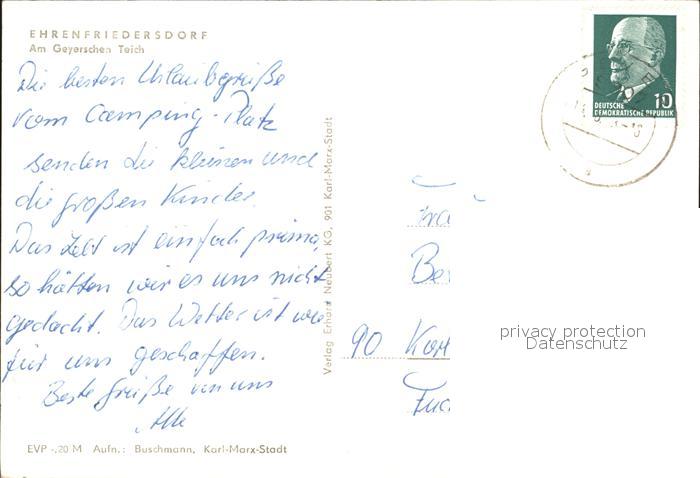 EHRENFRIEDERSDORF
Am Geyerschen Teich
Die besten Urlaubsgrüße
vom Camping-Platz
senden die kleinen und
die großen Kinder.
Das Zelt ist einfach prima,
so hätten wir es uns nicht
gedacht. Das Wetter ist wie
für uns geschaffen.
Beste Grüße von uns
Alle
EVP -,20 M Aufn.: Buschmann, Karl-Marx-Stadt
Verlag Erhard Neubert KG, 901 Karl-Marx-Stadt
DEUTSCHE
DEMOKRATISCHE REPUBLIK
10
90 Kar
privacy protection
Datenschutz